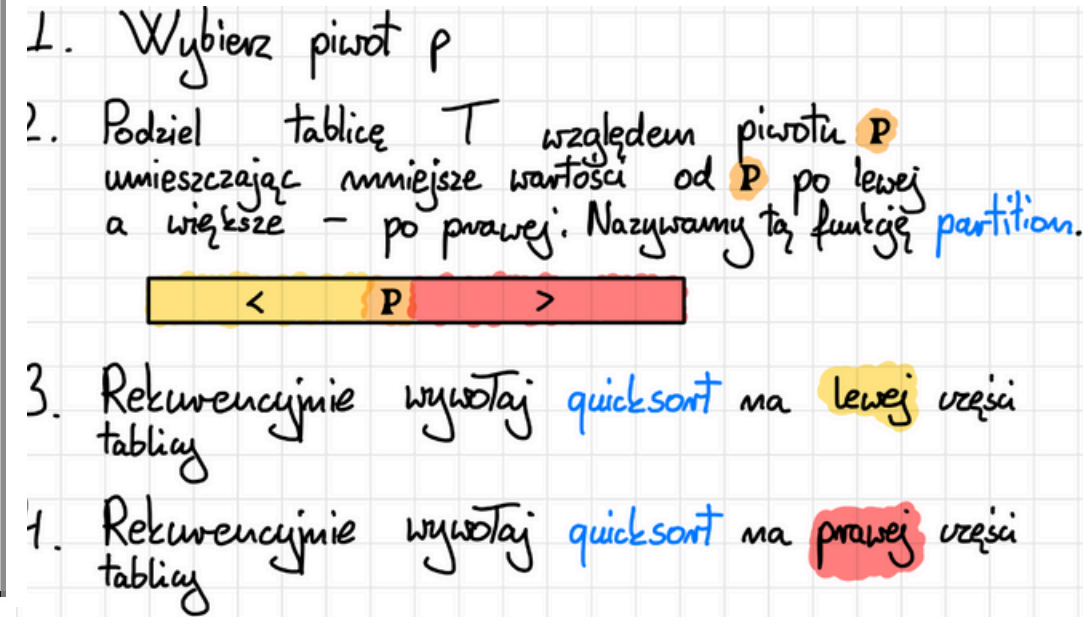 1. Wybierz piwot p
2. Podziel tablicę T względem piwotu P
umieszczając mniejsze wartości od P po lewej
a większe – po prawej. Nazywamy tą funkcję partition.
< P >
3. Rekurencyjnie wywołaj quicksort na lewej części
tablicy
4. Rekurencyjnie wywołaj quicksort na prawej części
tablicy